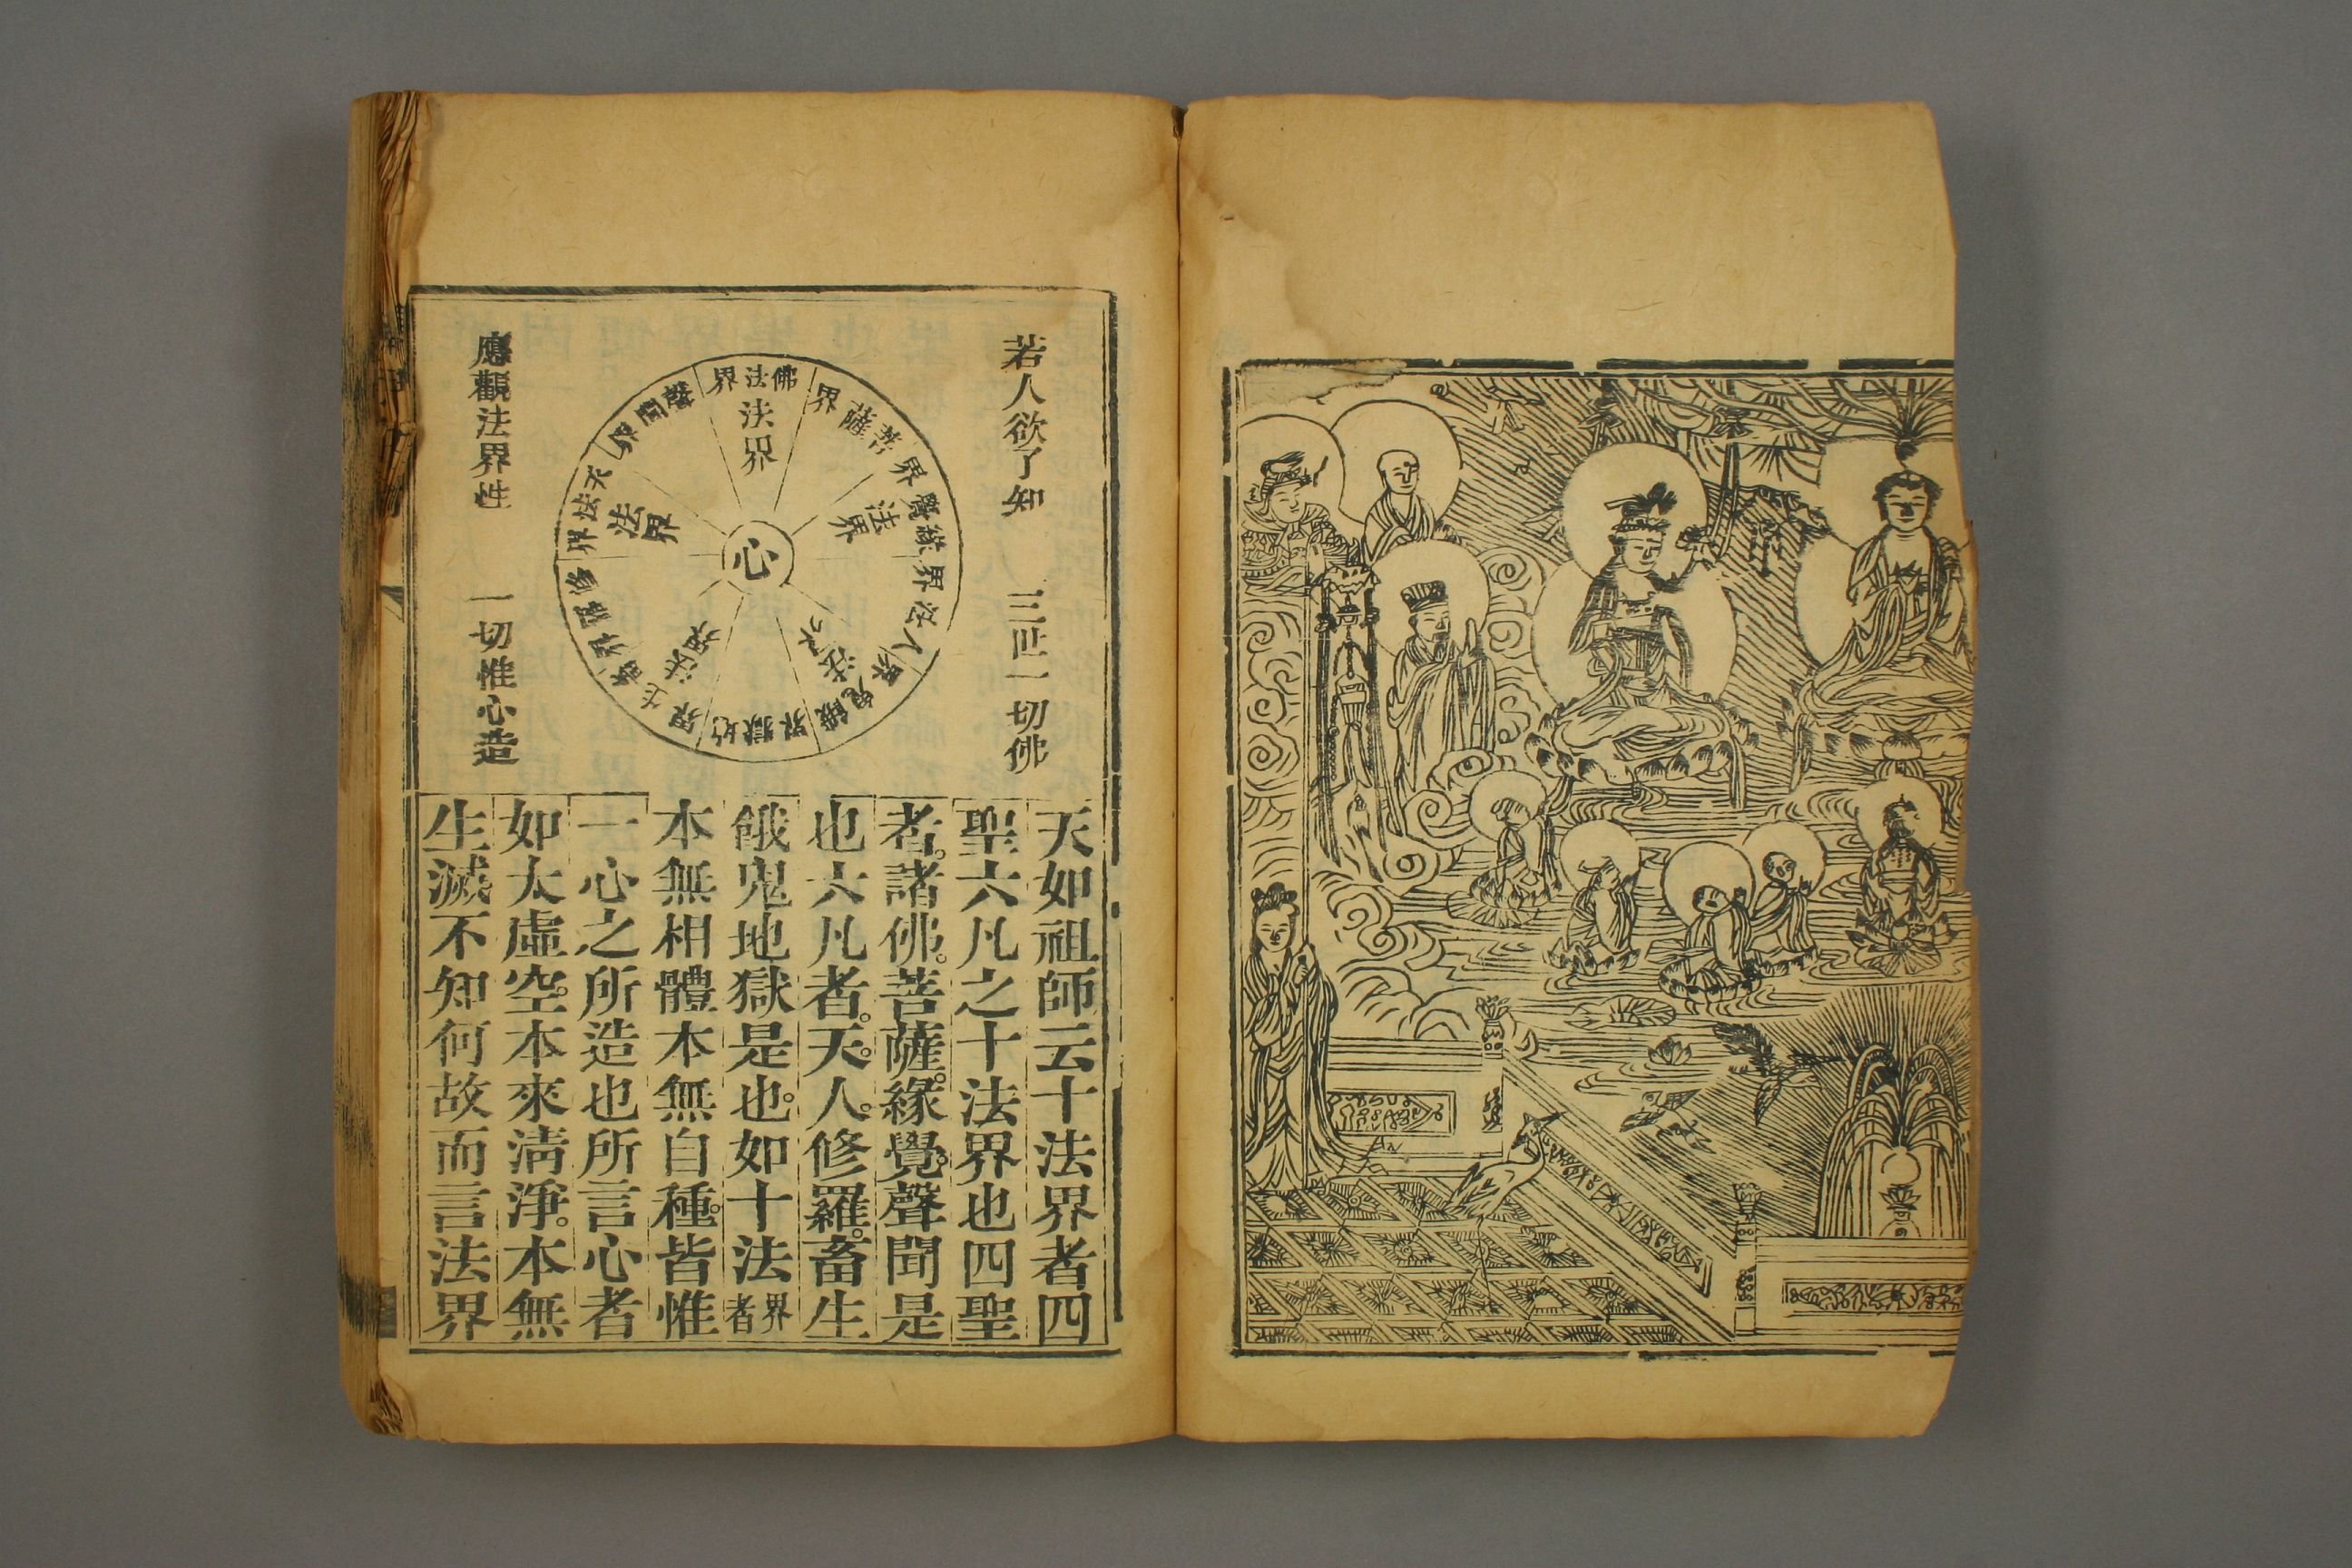 若人欲了知
三世一切佛
應觀法界性
一切惟心造
心
法界
佛法界
菩薩界
法界
緣覺界
人法界
餓鬼界
地獄界
法界
畜生界
修羅界
天法界
法界
聲聞界
天如祖師云十法界者四
聖六凡之十法界也四聖
者。諸佛。菩薩。緣覺。聲聞是
也六凡者。天。人。修羅。畜生
餓鬼地獄是也。如十法界者
本無相體本無自種。皆惟
一心之所造也所言心者
如太虛空。本來淸淨。本無
生滅不知何故而言法界